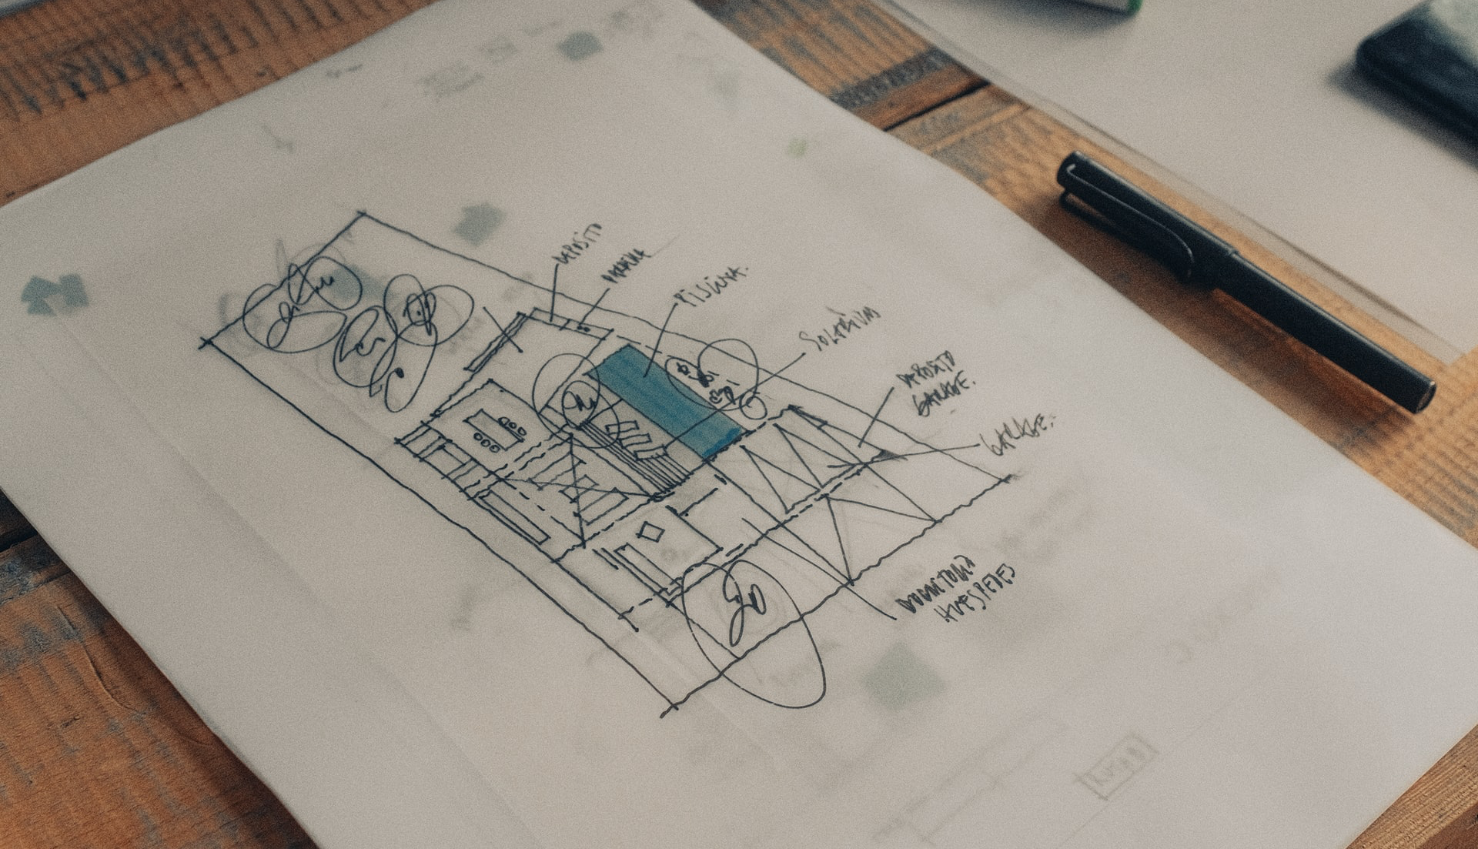 DEPOSITO
PISCINA.
SOLARIUM
DEPOSITO
GARAGE.
GARAGE.
DORMITORIO
HUESPEDES